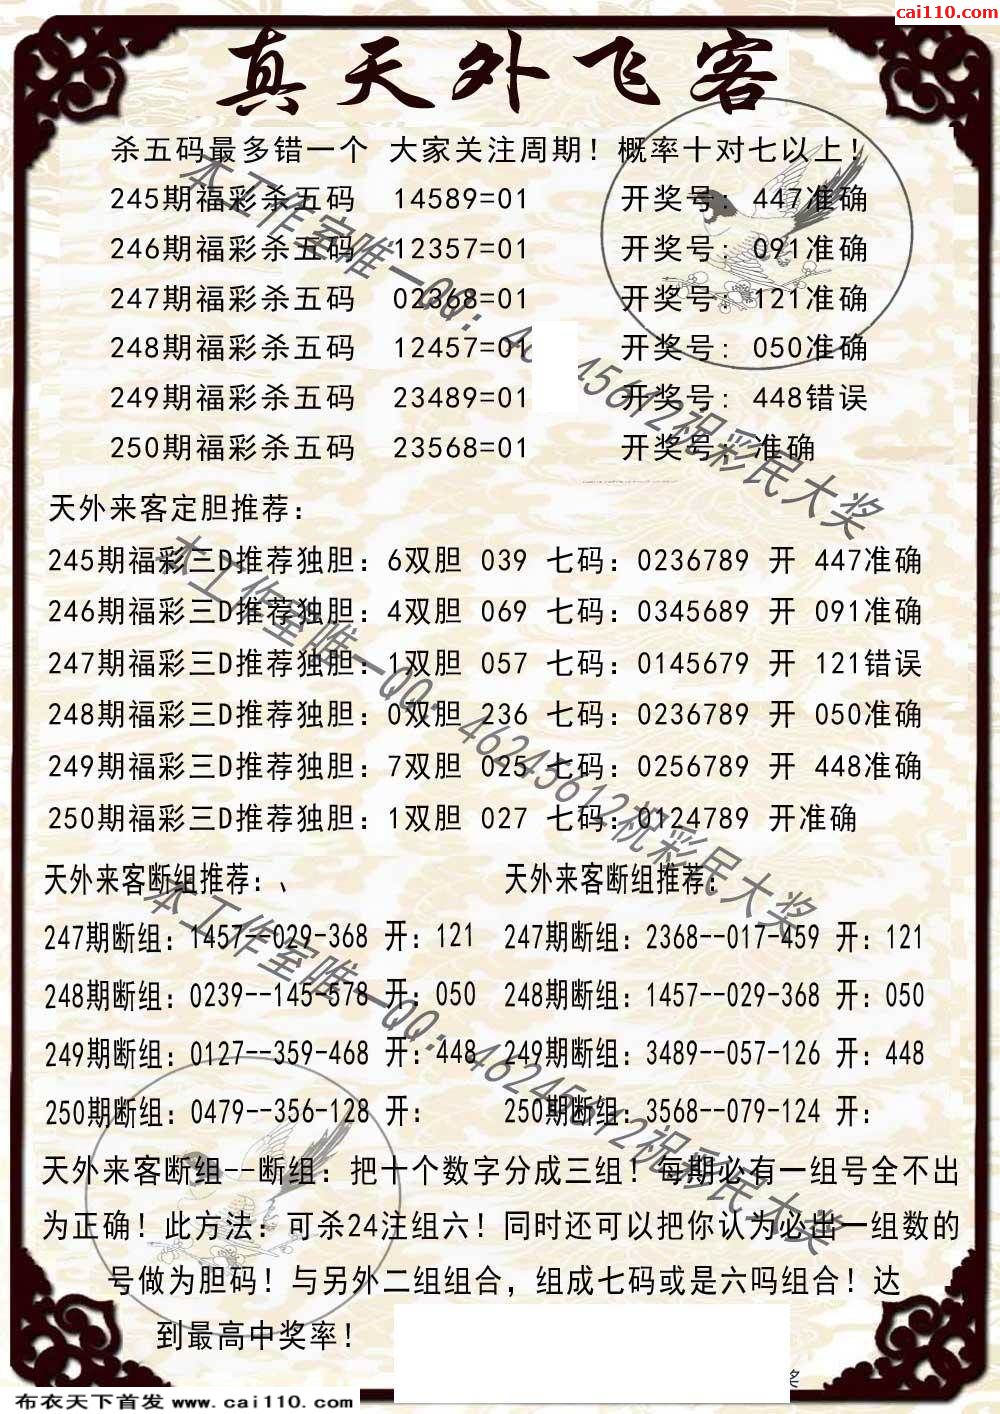 cai110.com
真天外飞客
杀五码最多错一个 大家关注周期！概率十对七以上！
245期福彩杀五码 14589=01 开奖号：447准确
246期福彩杀五码 12357=01 开奖号：091准确
247期福彩杀五码 02368=01 开奖号：121准确
248期福彩杀五码 12457=01 开奖号：050准确
249期福彩杀五码 23489=01 开奖号：448错误
250期福彩杀五码 23568=01 开奖号：准确
天外来客定胆推荐：
245期福彩三D推荐独胆：6双胆 039 七码：0236789 开 447准确
246期福彩三D推荐独胆：4双胆 069 七码：0345689 开 091准确
247期福彩三D推荐独胆：1双胆 057 七码：0145679 开 121错误
248期福彩三D推荐独胆：0双胆 236 七码：0236789 开 050准确
249期福彩三D推荐独胆：7双胆 025 七码：0256789 开 448准确
250期福彩三D推荐独胆：1双胆 027 七码：0124789 开准确
天外来客断组推荐：、 天外来客断组推荐：
247期断组：1457--029-368 开：121 247期断组：2368--017-459 开：121
248期断组：0239--145-678 开：050 248期断组：1457--029-368 开：050
249期断组：0127--359-468 开：448 249期断组：3489--057-126 开：448
250期断组：0479--356-128 开： 250期断组：3568--079-124 开：
天外来客断组--断组：把十个数字分成三组！每期必有一组号全不出
为正确！此方法：可杀24注组六！同时还可以把你认为必出一组数的
号做为胆码！与另外二组组合，组成七码或是六吗组合！达
到最高中奖率！
本工作室唯一QQ：46245612祝彩民大奖
本工作室唯一QQ：46245612祝彩民大奖
本工作室唯一QQ：46245612祝彩民大奖
奖
布衣天下首发 www.cai110.com